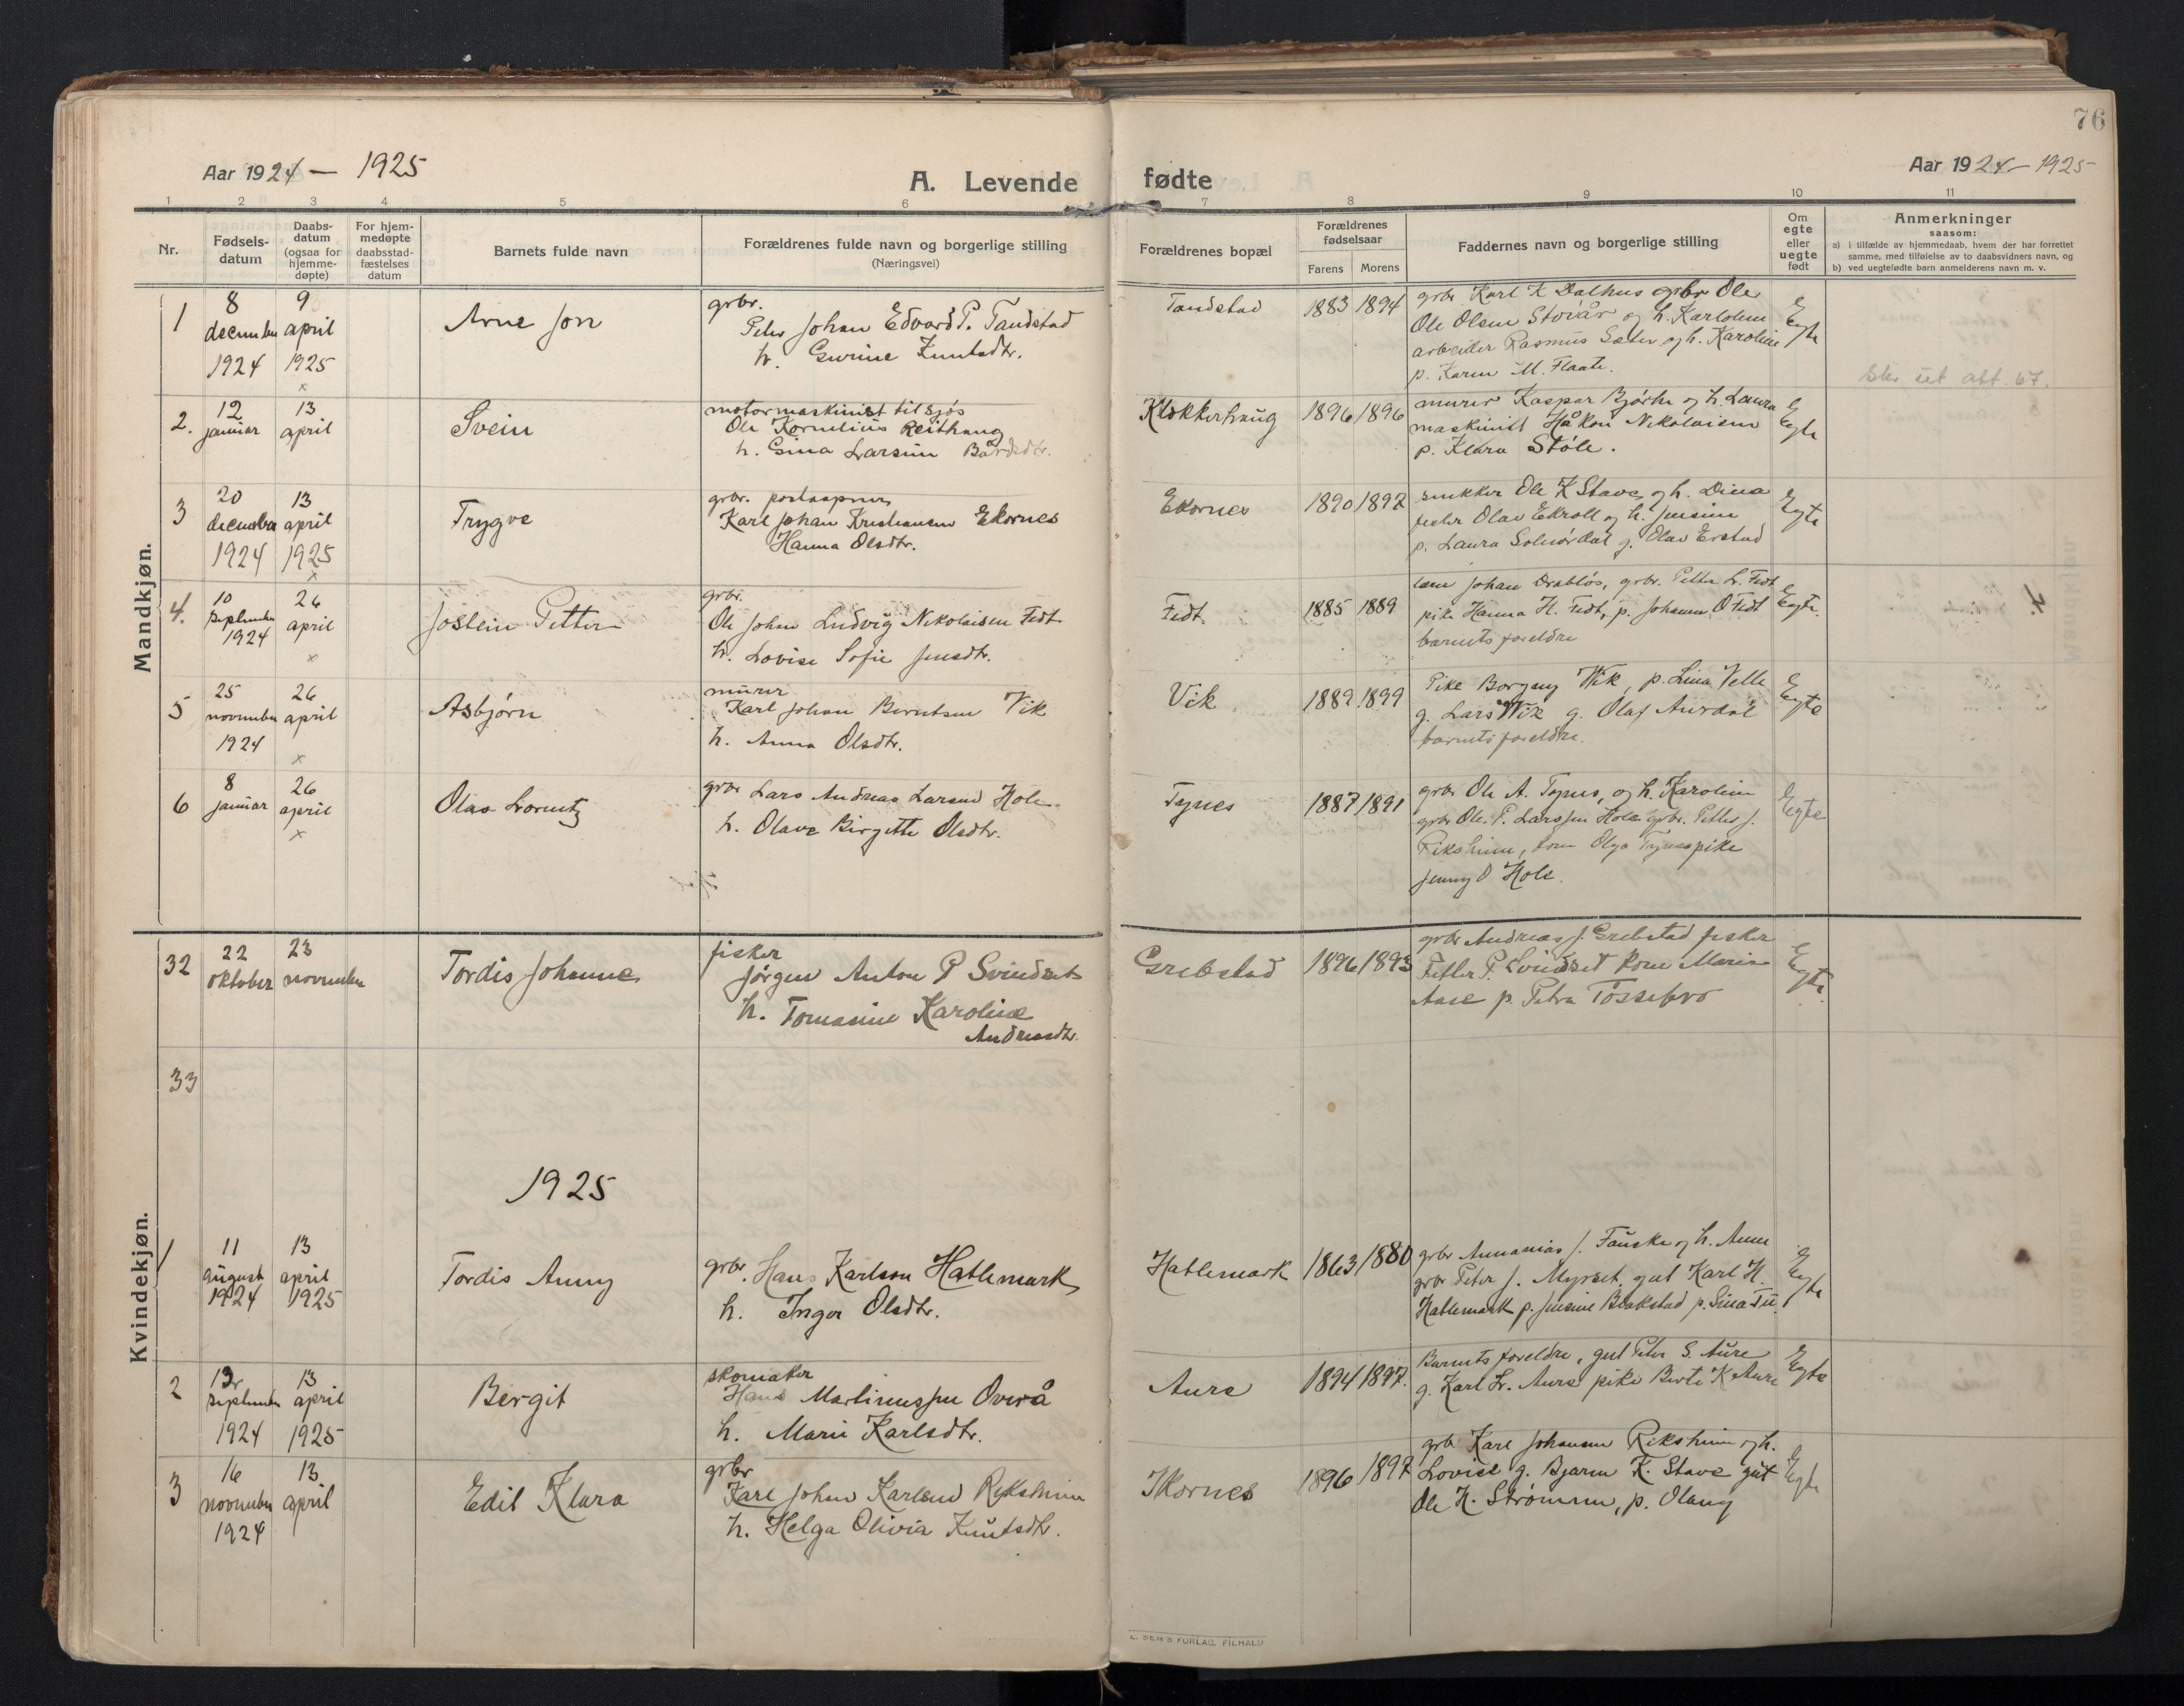 76
Aar 1924 — 1925
A. Levende fødte
Aar 1924 — 1925
1 2 3 4 5 6 7 8 9 10 11
Nr.
Fødsels-
datum
Daabs-
datum
(ogsaa for
hjemme-
døpte)
For hjem-
medøpte
daabsstad-
fæstelses
datum
Barnets fulde navn
Forældrenes fulde navn og borgerlige stilling
(Næringsvei)
Forældrenes bopæl
Forældrenes
fødselsaar
Farens Morens
Faddernes navn og borgerlige stilling
Om
egte
eller
uegte
født
Anmerkninger
saasom:
a) i tilfælde av hjemmedaab, hvem der har forrettet
samme, med tilføielse av to daabsvidners navn, og
b) ved uegtefødte barn anmelderens navn m. v.
Mandkjøn.
1
8 december 1924
9 april 1925
x
Arne Jon
grbr.
Peter Johan Edvard P. Tandstad
h. Gurine Knutsdtr.
Tandstad
1883 1894
grbr. Karl K Dalhus grbr Ole
Ole Olsen Stovår og h. Karoline
arbeider Rasmus Sæter og h. Karoline
p. Karen M. Flaate.
Egte
att. 67.
2.
12 januar
13 april
Svein
motormaskinist tilsjøs
Ole Kornelius Reithaug
h. Gina Larsine Bårdsdtr.
Klokkerhaug
1896 1896
murer Kaspar Bjørke og h. Laura
maskinist Håkon Nikolaisen
p. Klara Støle.
Egte
3
20 december 1924
13 april 1925
x
Trygve
grbr. postaapner
Karl Johan Kristiansen Ekornes
Hanna Olsdtr.
Ekornes
1890 1892
snikker Ole K Stave og h. Dina
fisker Olav Ekroll og h. Jensine
p. Laura Solnørdal g. Olav Erstad
Egte
4.
10 september 1924
26 april
x
Jostein Petter
grbr.
Ole Johan Ludvig Nikolaisen Fedt
h. Lovise Sofie Jensdtr.
Fedt.
1885 1889
Johan Drabløs, grbr. Petter L. Fedt
pike Hanna H. Fedt, p. Johanna O Fedt
barnets foreldre
Egte.
5
25 november 1924
26 april
x
Asbjørn
murer
Karl Johan Berntsen Vik
h. Anna Olsdtr.
Vik
1889 1899
Pike Borgny Wik, p. Lina Velle
g. Lars Wik g. Olaf Aurdal
barnets foreldre.
Egte
6
8 januar
26 april
x
Olav Lorentz
grbr Lars Andreas Larsen Hole
h. Olave Birgitte Olsdtr.
Tynes
1887 1891
grbr Ole A. Tynes, og h. Karoline
grbr Ole. P. Larssen Hole grbr. Petter J.
Riksheim, kone Olga Tynes pike
Jenny O Hole.
Egte
Kvindekjøn.
32
22 oktober
23 november
Tordis Johanne
fisker
Jörgen Anton P Svindset
h. Tomasine Karoline
Andreasdtr.
Grebstad
1896 1893
grbr Andreas J. Grebstad fisker
Petter P. Svindset kone Marie
Aase p. Petra Tössebro
Egte.
33
1925
1
11 august 1924
13 april 1925
Tordis Anny
grbr. Hans Karlson Hatlemark
h. Inger Olsdtr.
Hatlemark
1863 1880
grbr Annanias J. Fauske og h. Anne
grbr Peter J. Myrset, gut Karl H.
Hatlemark p. Jensine Blakstad p. Sina Tu.
Egte
2
12 september 1924
13 april 1925
Bergit
skomaker
Hans Martinussen Overå
h. Marie Karlsdtr.
Aure
1894 1897.
Barnets foreldre, gut Peter S. Aure
g. Karl Lr. Aure pike Berte K Aure
Egte
3
16 november 1924
13 april
Edit Klara
grbr
Karl Johan Karlsen Riksheim
h. Helga Olivia Knutsdtr.
Ikornes
1896 1897
grbr Karl Johansen Riksheim og h.
Lovise g. Bjarne K. Stave gut
Ole H. Strømmen, p. Olaug
Egte
L. SEM'S FORLAG. FR.HALD